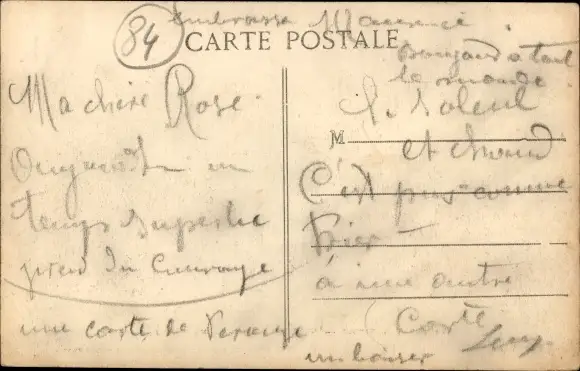 embrasse Maurice
84
CARTE POSTALE
Bonjour a tout
le monde
Ma chère Rose
un
temps superbe
prend du Courage
une carte de
soleil
M
et chaud
C'est pas comme
hier
à une autre
Carte
un baiser